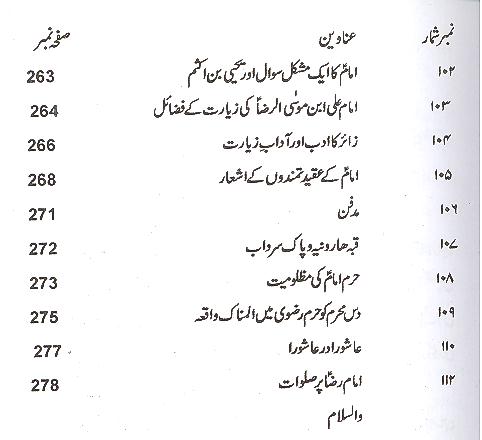 نمبر شمار عناوین صفحہ نمبر
۱۰۲ امامؑ کا ایک مشکل سوال اور یحییٰ بن اکثم 263
۱۰۳ امام علی ابن موسٰی الرضاؑ کی زیارت کے فضائل 264
۱۰۴ زائر کا ادب اور آداب زیارت 266
۱۰۵ امامؑ کے عقیدتمندوں کے اشعار 268
۱۰۶ مدفن 271
۱۰۷ قبہ ھارونیہ و پاک سرداب 272
۱۰۸ حرم امامؑ کی مظلومیت 273
۱۰۹ دس محرم کو حرم رضوی میں المناک واقعہ 275
۱۱۰ عاشورا در عاشورا 277
۱۱۲ امام رضاؑ پر صلوات 278
والسلام